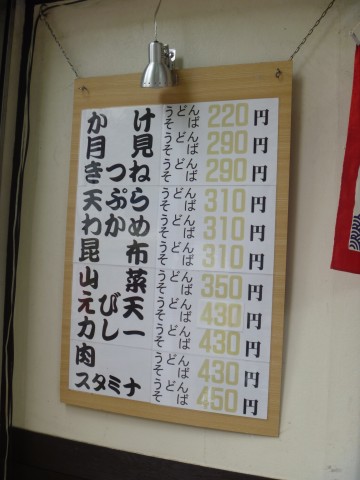 かけ うどん そば 220円
月見 うどん そば 290円
きつね うどん そば 290円
天ぷら うどん そば 310円
わかめ うどん そば 310円
昆布 うどん そば 310円
山菜 うどん そば 350円
えび天 うどん そば 430円
カレー うどん そば 430円
肉 うどん そば 430円
スタミナ うどん そば 450円